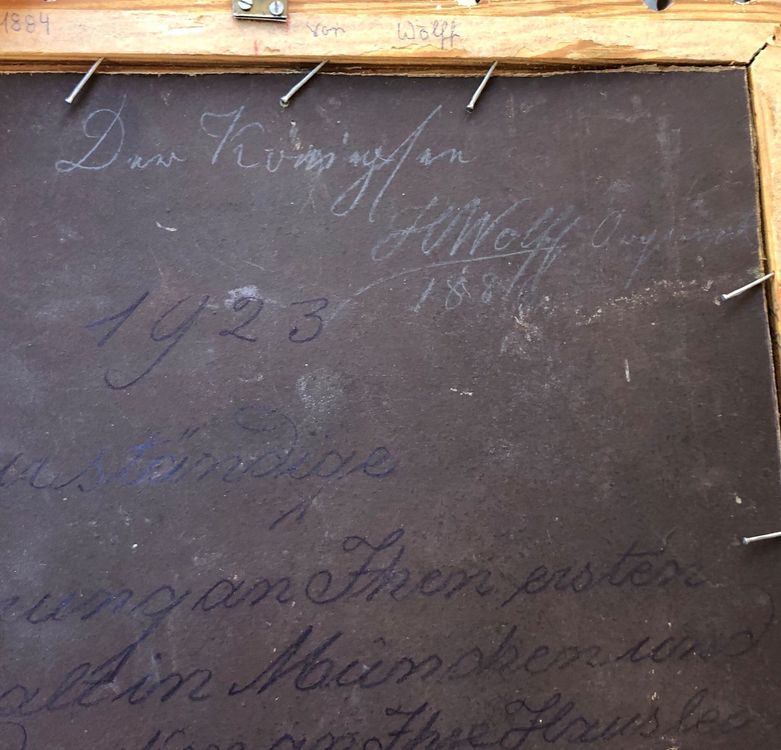 1884 von Wolff
Der Königssee
HWolff
188
1923
ständige
nung an Ihren ersten
alt in München und
an Ihre Hausleu